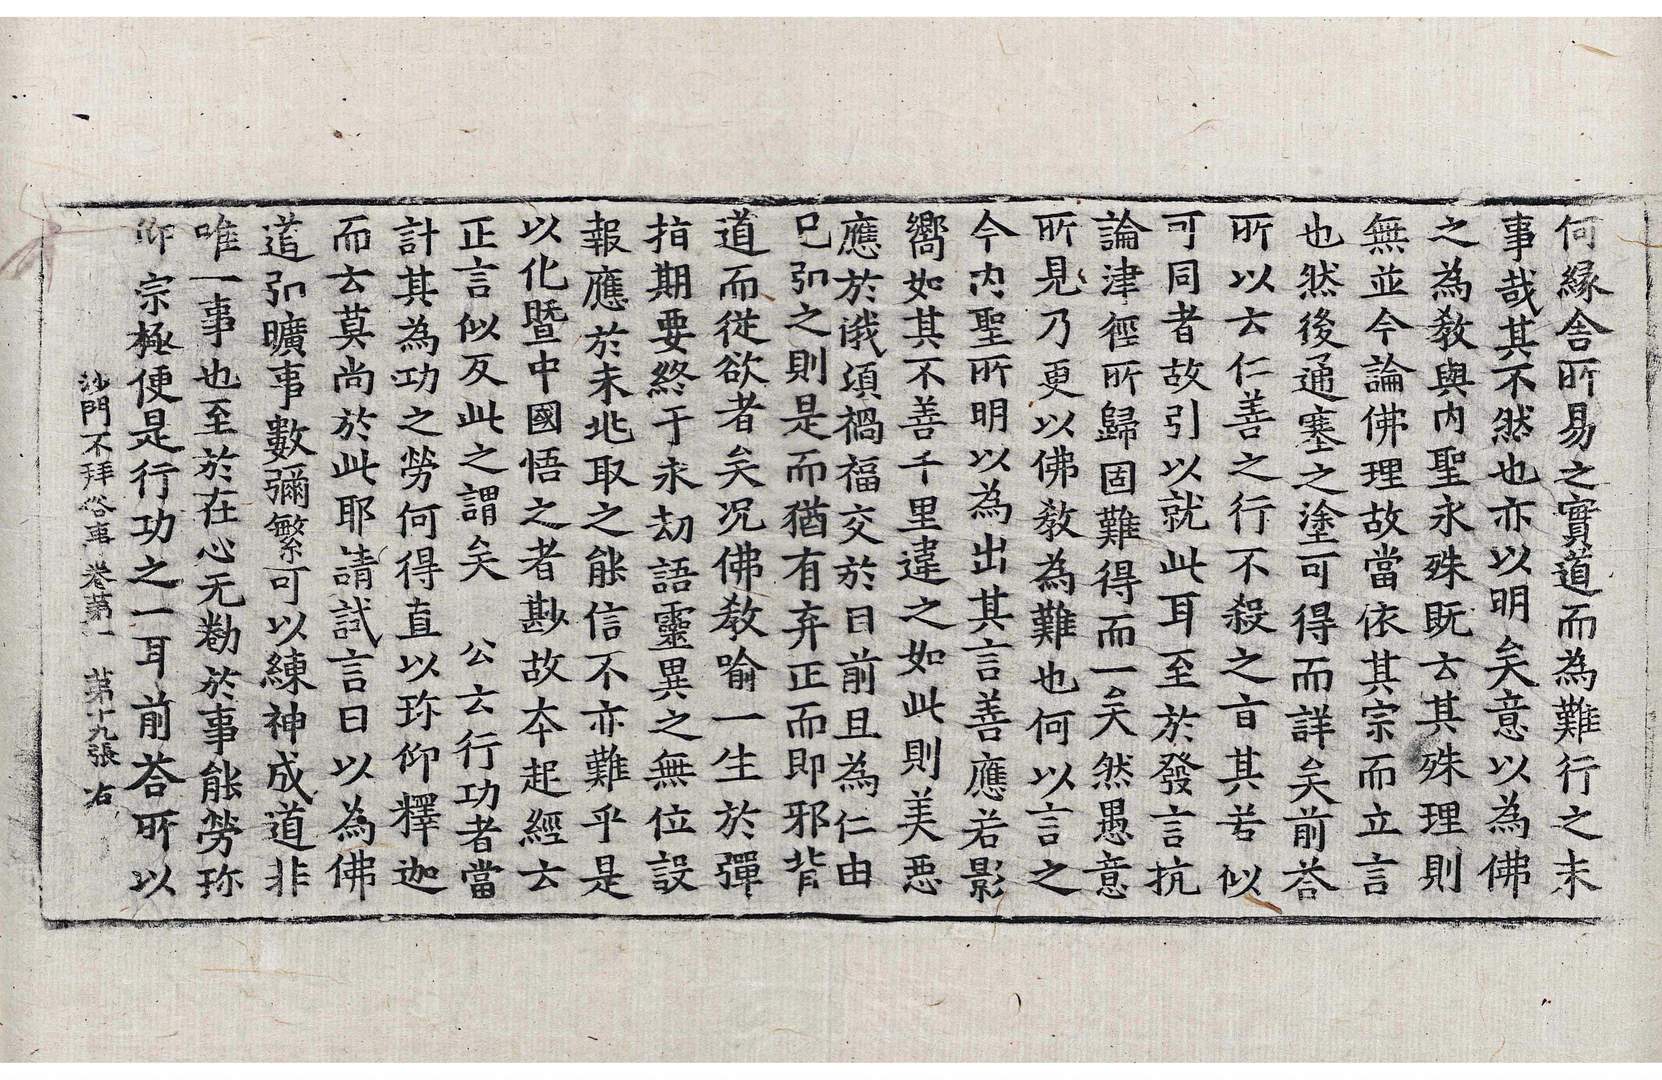 何緣舍所易之實道而為難行之末
事哉其不然也亦以明矣意以為佛
之為教與内聖永殊既云其殊理則
無並今論佛理故當依其宗而立言
也然後通塞之塗可得而詳矣前荅
所以云仁善之行不殺之旨其若似
可同者故引以就此耳至於發言抗
論津徑所歸固難得而一矣然愚意
所見乃更以佛教為難也何以言之
今内聖所明以為出其言善應若影
嚮如其不善千里違之如此則美惡
應於俄頃禍福交於目前且為仁由
已弘之則是而猶有弃正而即邪背
道而從欲者矣况佛教喻一生於彈
指期要終于永劫語靈異之無位設
報應於未兆取之能信不亦難乎是
以化暨中國悟之者尠故本起經云
正言似反此之謂矣　公云行功者當
計其為功之勞何得直以珎仰釋迦
而云莫尚於此耶請試言曰以為佛
道弘曠事數彌繁可以練神成道非
唯一事也至於在心无勌於事能勞珎
仰宗極便是行功之一耳前荅所以
沙門不拜俗事卷第一　第十九張　右